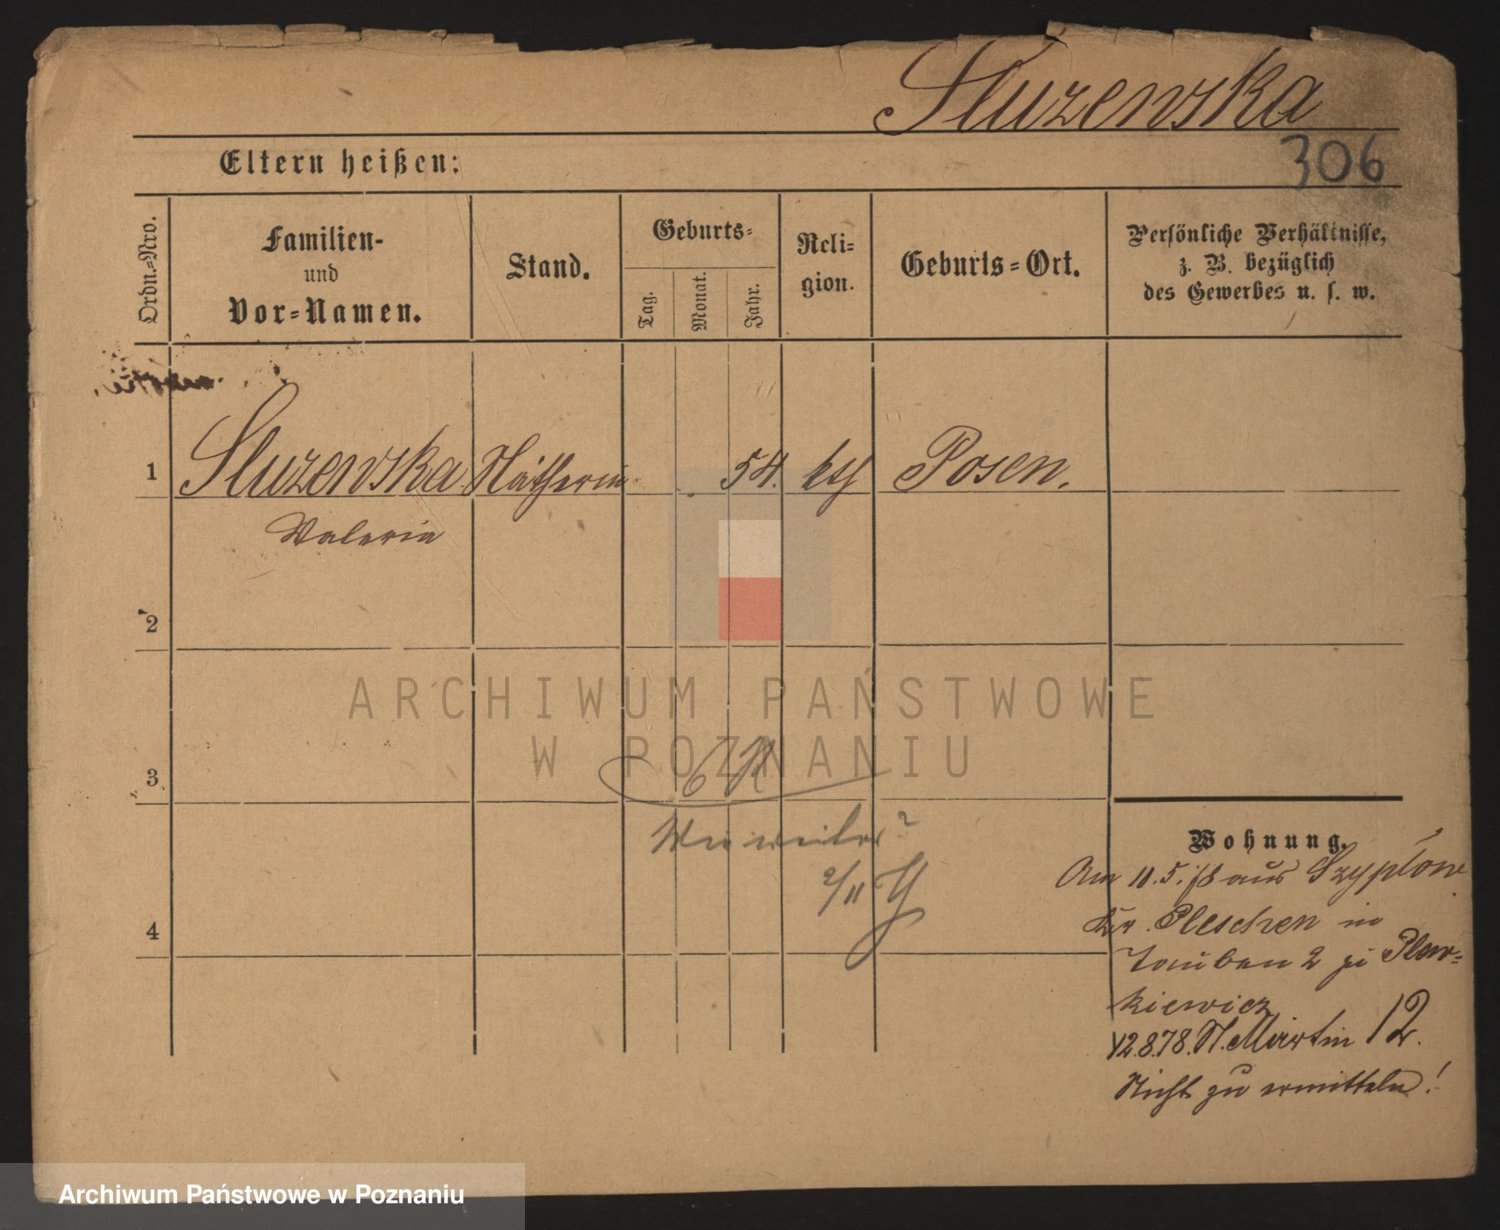 Sluzewska
Eltern heißen:
306
Ordn.-Nro.
Familien-
und
Vor-Namen.
Stand.
Geburts-
Tag.
Monat.
Jahr.
Reli-
gion.
Geburts-Ort.
Persönliche Verhältnisse,
z. B. bezüglich
des Gewerbes u. s. w.
1
Sluzewska Nätherin 54. kth Posen.
Valeria
2
ARCHIWUM PAŃSTWOWE
W POZNANIU
3
4
Wohnung.
Am 11.5. aus Szyplow
Kr. Pleschen in
Tauben 2 zu Plew-
kiewicz
12.8.78. St. Martin 12.
Nicht zu ermitteln!
Archiwum Państwowe w Poznaniu